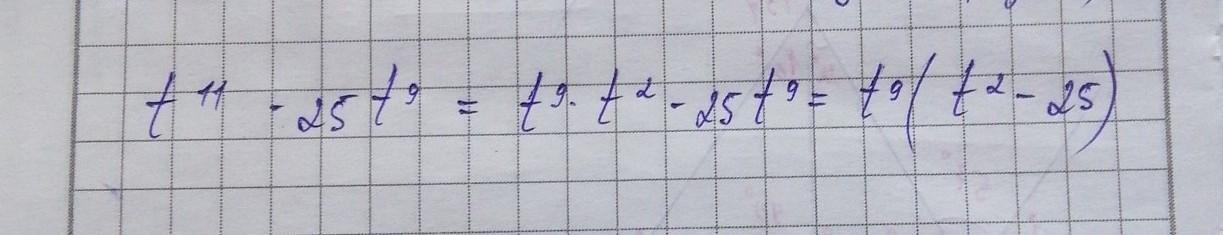 t¹¹ - 25t⁹ = t⁹· t² - 25t⁹ = t⁹( t² - 25)